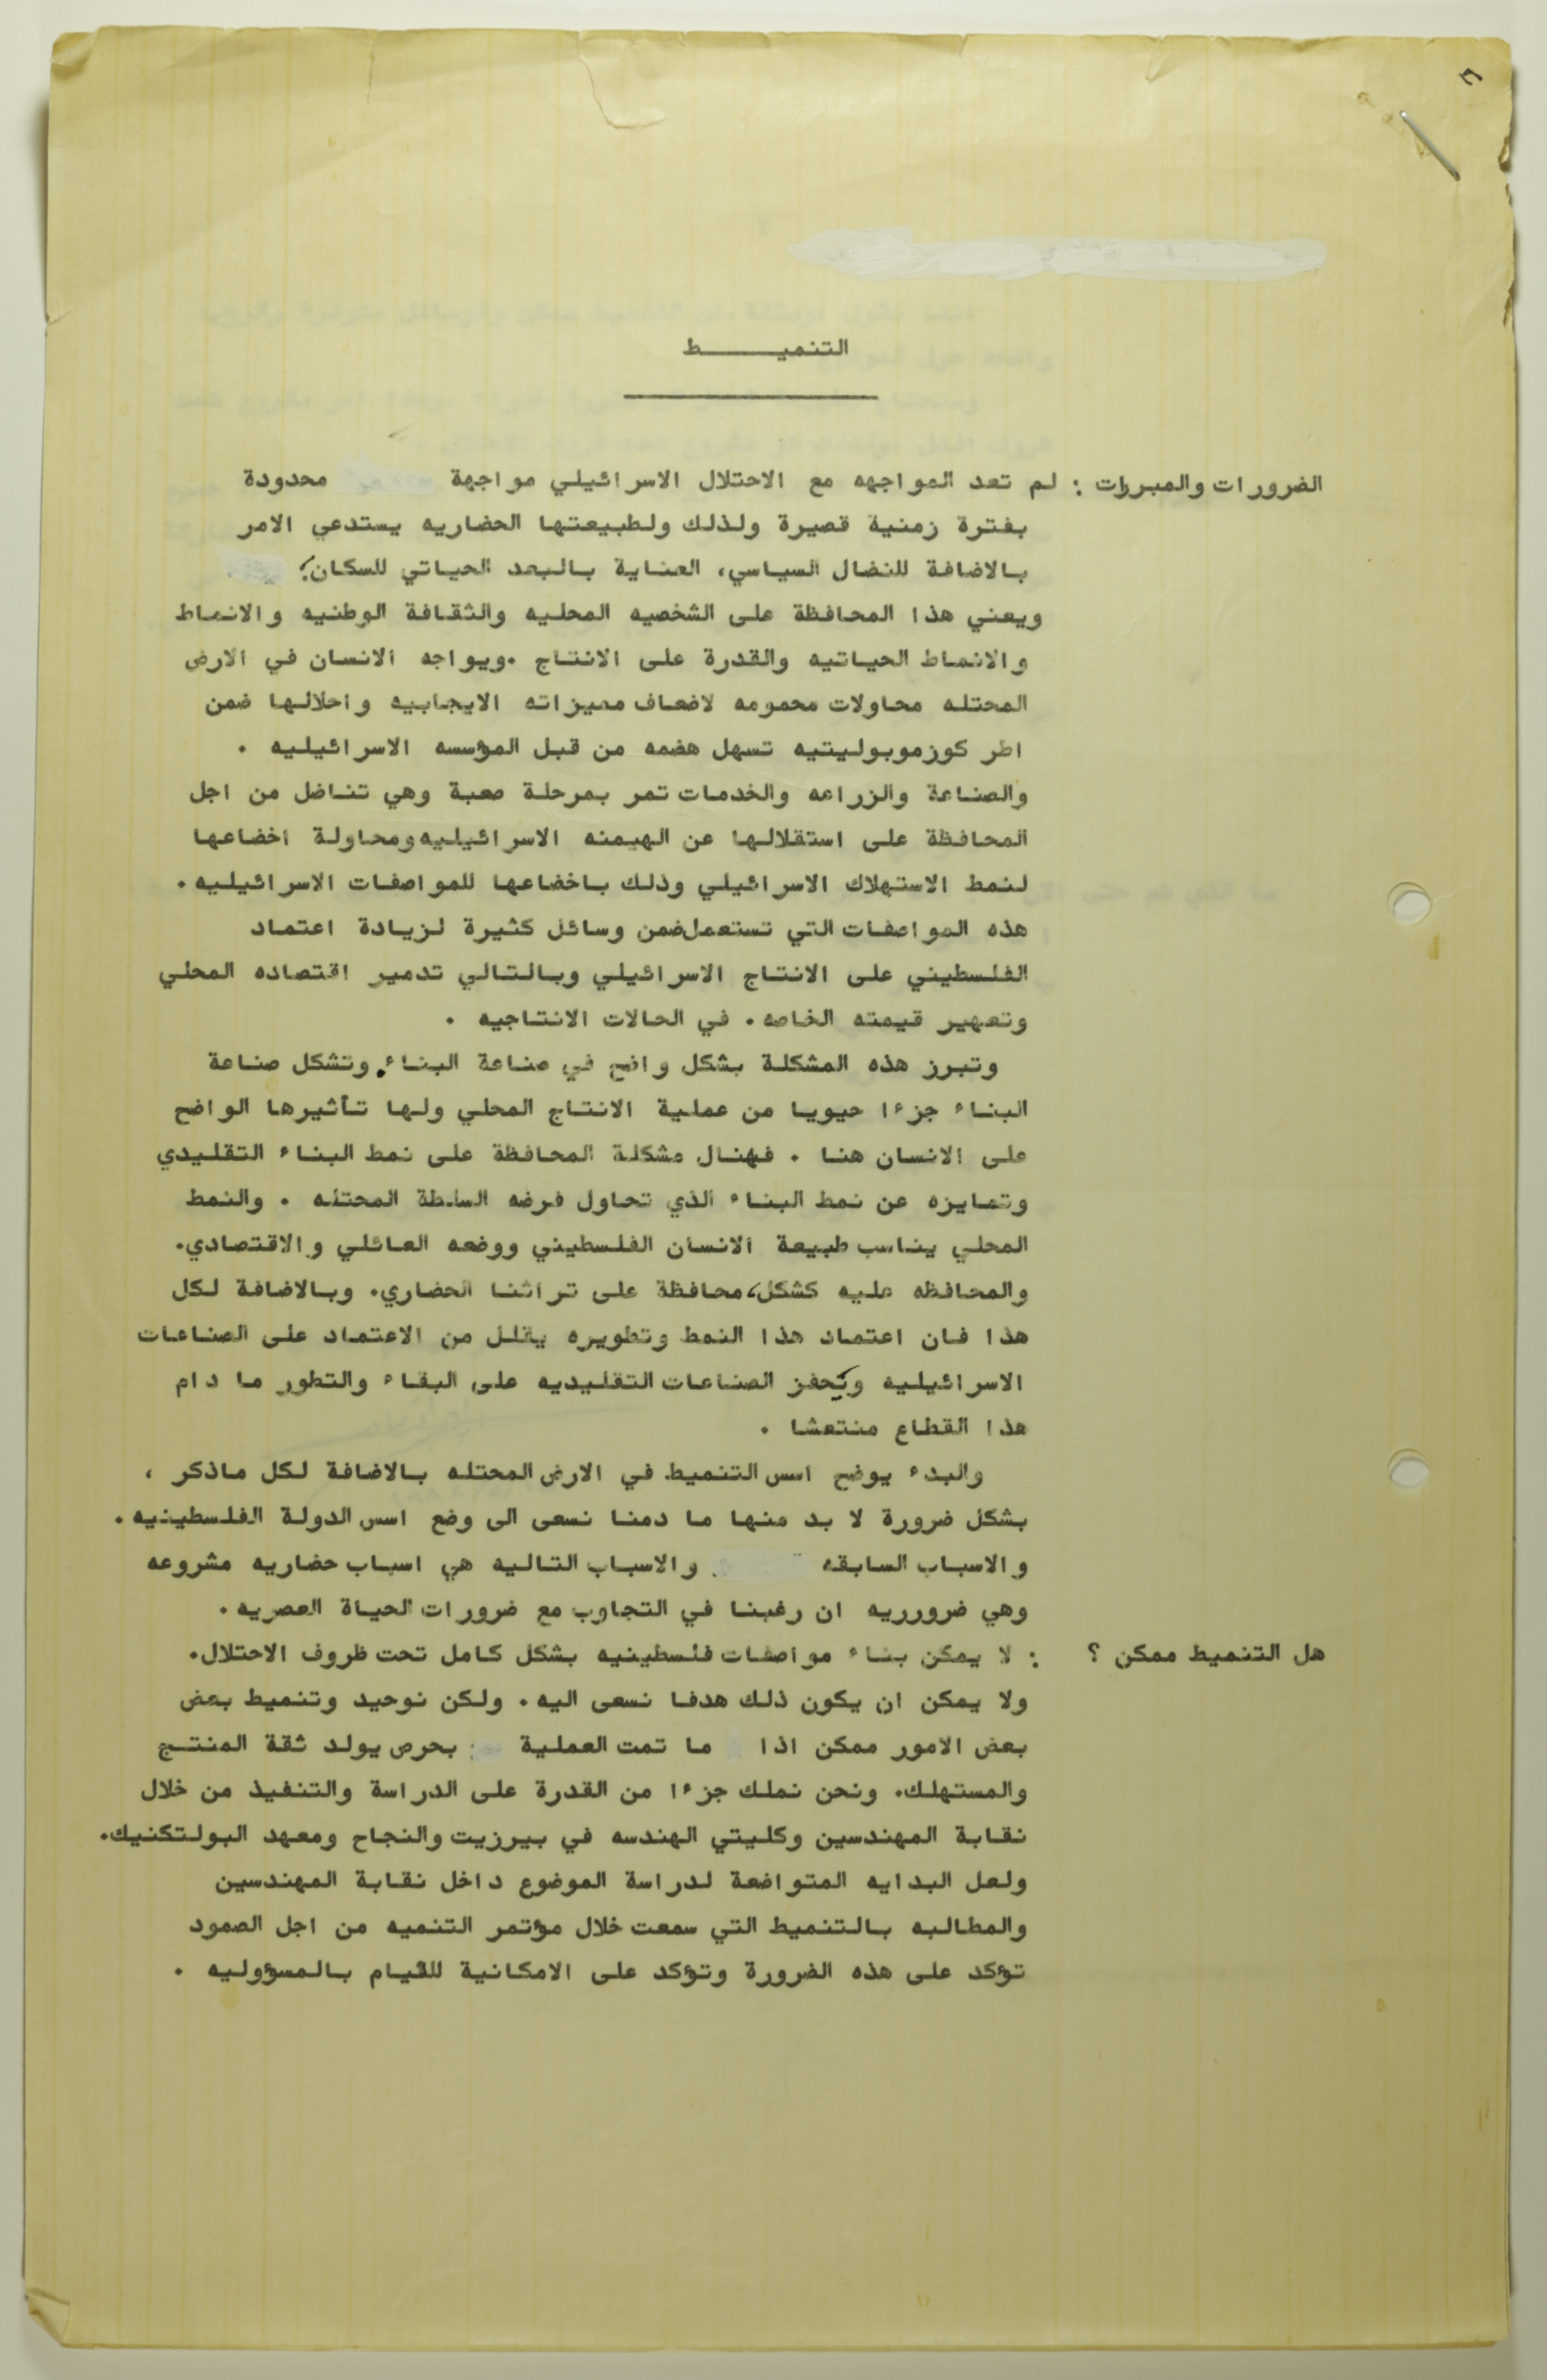 التنميـــــط
الضرورات والمبررات : لم تعد المواجهه مع الاحتلال الاسرائيلي مواجهة محدودة
بفترة زمنية قصيرة ولذلك ولطبيعتها الحضاريه يستدعي الامر
بالاضافة للنضال السياسي، العناية بالبعد الحياتي للسكان،
ويعني هذا المحافظة على الشخصيه المحليه والثقافة الوطنيه والانماط
والانماط الحياتيه والقدرة على الانتاج .ويواجه الانسان في الارض
المحتله محاولات محمومه لاضعاف مميزاته الايجابيه واحلالها ضمن
اطر كوزموبوليتيه تسهل هضمه من قبل المؤسسه الاسرائيليه .
والصناعة والزراعه والخدمات تمر بمرحلة صعبة وهي تناضل من اجل
المحافظة على استقلالها عن الهيمنه الاسرائيليه ومحاولة اخضاعها
لنمط الاستهلاك الاسرائيلي وذلك باخضاعها للمواصفات الاسرائيليه .
هذه المواصفات التي تستعمل ضمن وسائل كثيرة لزيادة اعتماد
الفلسطيني على الانتاج الاسرائيلي وبالتالي تدمير اقتصاده المحلي
وتعهير قيمته الخاصه . في الحالات الانتاجيه .
وتبرز هذه المشكلة بشكل واضح في صناعة البناء . وتشكل صناعة
البناء جزءا حيويا من عملية الانتاج المحلي ولها تأثيرها الواضح
على الانسان هنا . فهنال مشكلة المحافظة على نمط البناء التقليدي
وتمايزه عن نمط البناء الذي تحاول فرضه السلطة المحتله . والنمط
المحلي يناسب طبيعة الانسان الفلسطيني ووضعه العائلي والاقتصادي.
والمحافظه عليه كشكل، محافظة على تراثنا الحضاري. وبالاضافة لكل
هذا فان اعتماد هذا النمط وتطويره يقلل من الاعتماد على الصناعات
الاسرائيليه ويحفز الصناعات التقليديه على البقاء والتطور ما دام
هذا القطاع منتعشا .
والبدء يوضح اسس التنميط في الارض المحتله بالاضافة لكل ماذكر ،
بشكل ضرورة لا بد منها ما دمنا نسعى الى وضع اسس الدولة الفلسطينيه .
والاسباب السابقه والاسباب التاليه هي اسباب حضاريه مشروعه
وهي ضرورريه ان رغبنا في التجاوب مع ضرورات الحياة العصريه .
هل التنميط ممكن ؟ : لا يمكن بناء مواصفات فلسطينيه بشكل كامل تحت ظروف الاحتلال.
ولا يمكن ان يكون ذلك هدفا نسعى اليه . ولكن نوحيد وتنميط بعض
بعض الامور ممكن اذا ما تمت العملية بحرص يولد ثقة المنتج
والمستهلك. ونحن نملك جزءا من القدرة على الدراسة والتنفيذ من خلال
نقابة المهندسين وكليتي الهندسه في بيرزيت والنجاح ومعهد البولتكنيك.
ولعل البدايه المتواضعة لدراسة الموضوع داخل نقابة المهندسين
والمطالبه بالتنميط التي سمعت خلال مؤتمر التنميه من اجل الصمود
تؤكد على هذه الضرورة وتؤكد على الامكانية للقيام بالمسؤوليه .